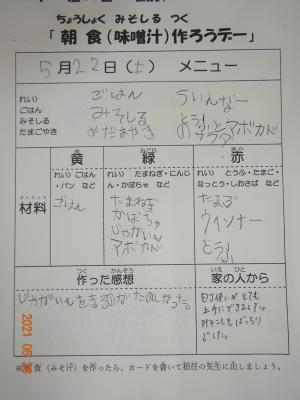 ちょうしょく みそしる つく
「朝食(味噌汁)作ろうデー」
5月22日(土) メニュー
れい)
ごはん
みそしる
たまごやき
ごはん
みそしる
めだまやき
ういんなー
とうふとアボカド
サラダ
黄 緑 赤
ざいりょう
材料
れい) ごはん
・パン など
れい) たまねぎ・にんじ
ん・かぼちゃ など
れい) とうふ・たまご・
なっとう・しおさば など
ごはん
たまねぎ
かぼちゃ
じゃがいも
アボカド
たまご
ウィンナー
とうふ
つく かんそう
作った感想
いえ ひと
家の人から
じゃがいもをきるのがたのしかった。
包丁使いがとても
上手にできました。
みそこしもばっちり
でした。
2021 05 2
食(みそ汁)を作ったら、カードを書いて担任の先生に出しましょう。